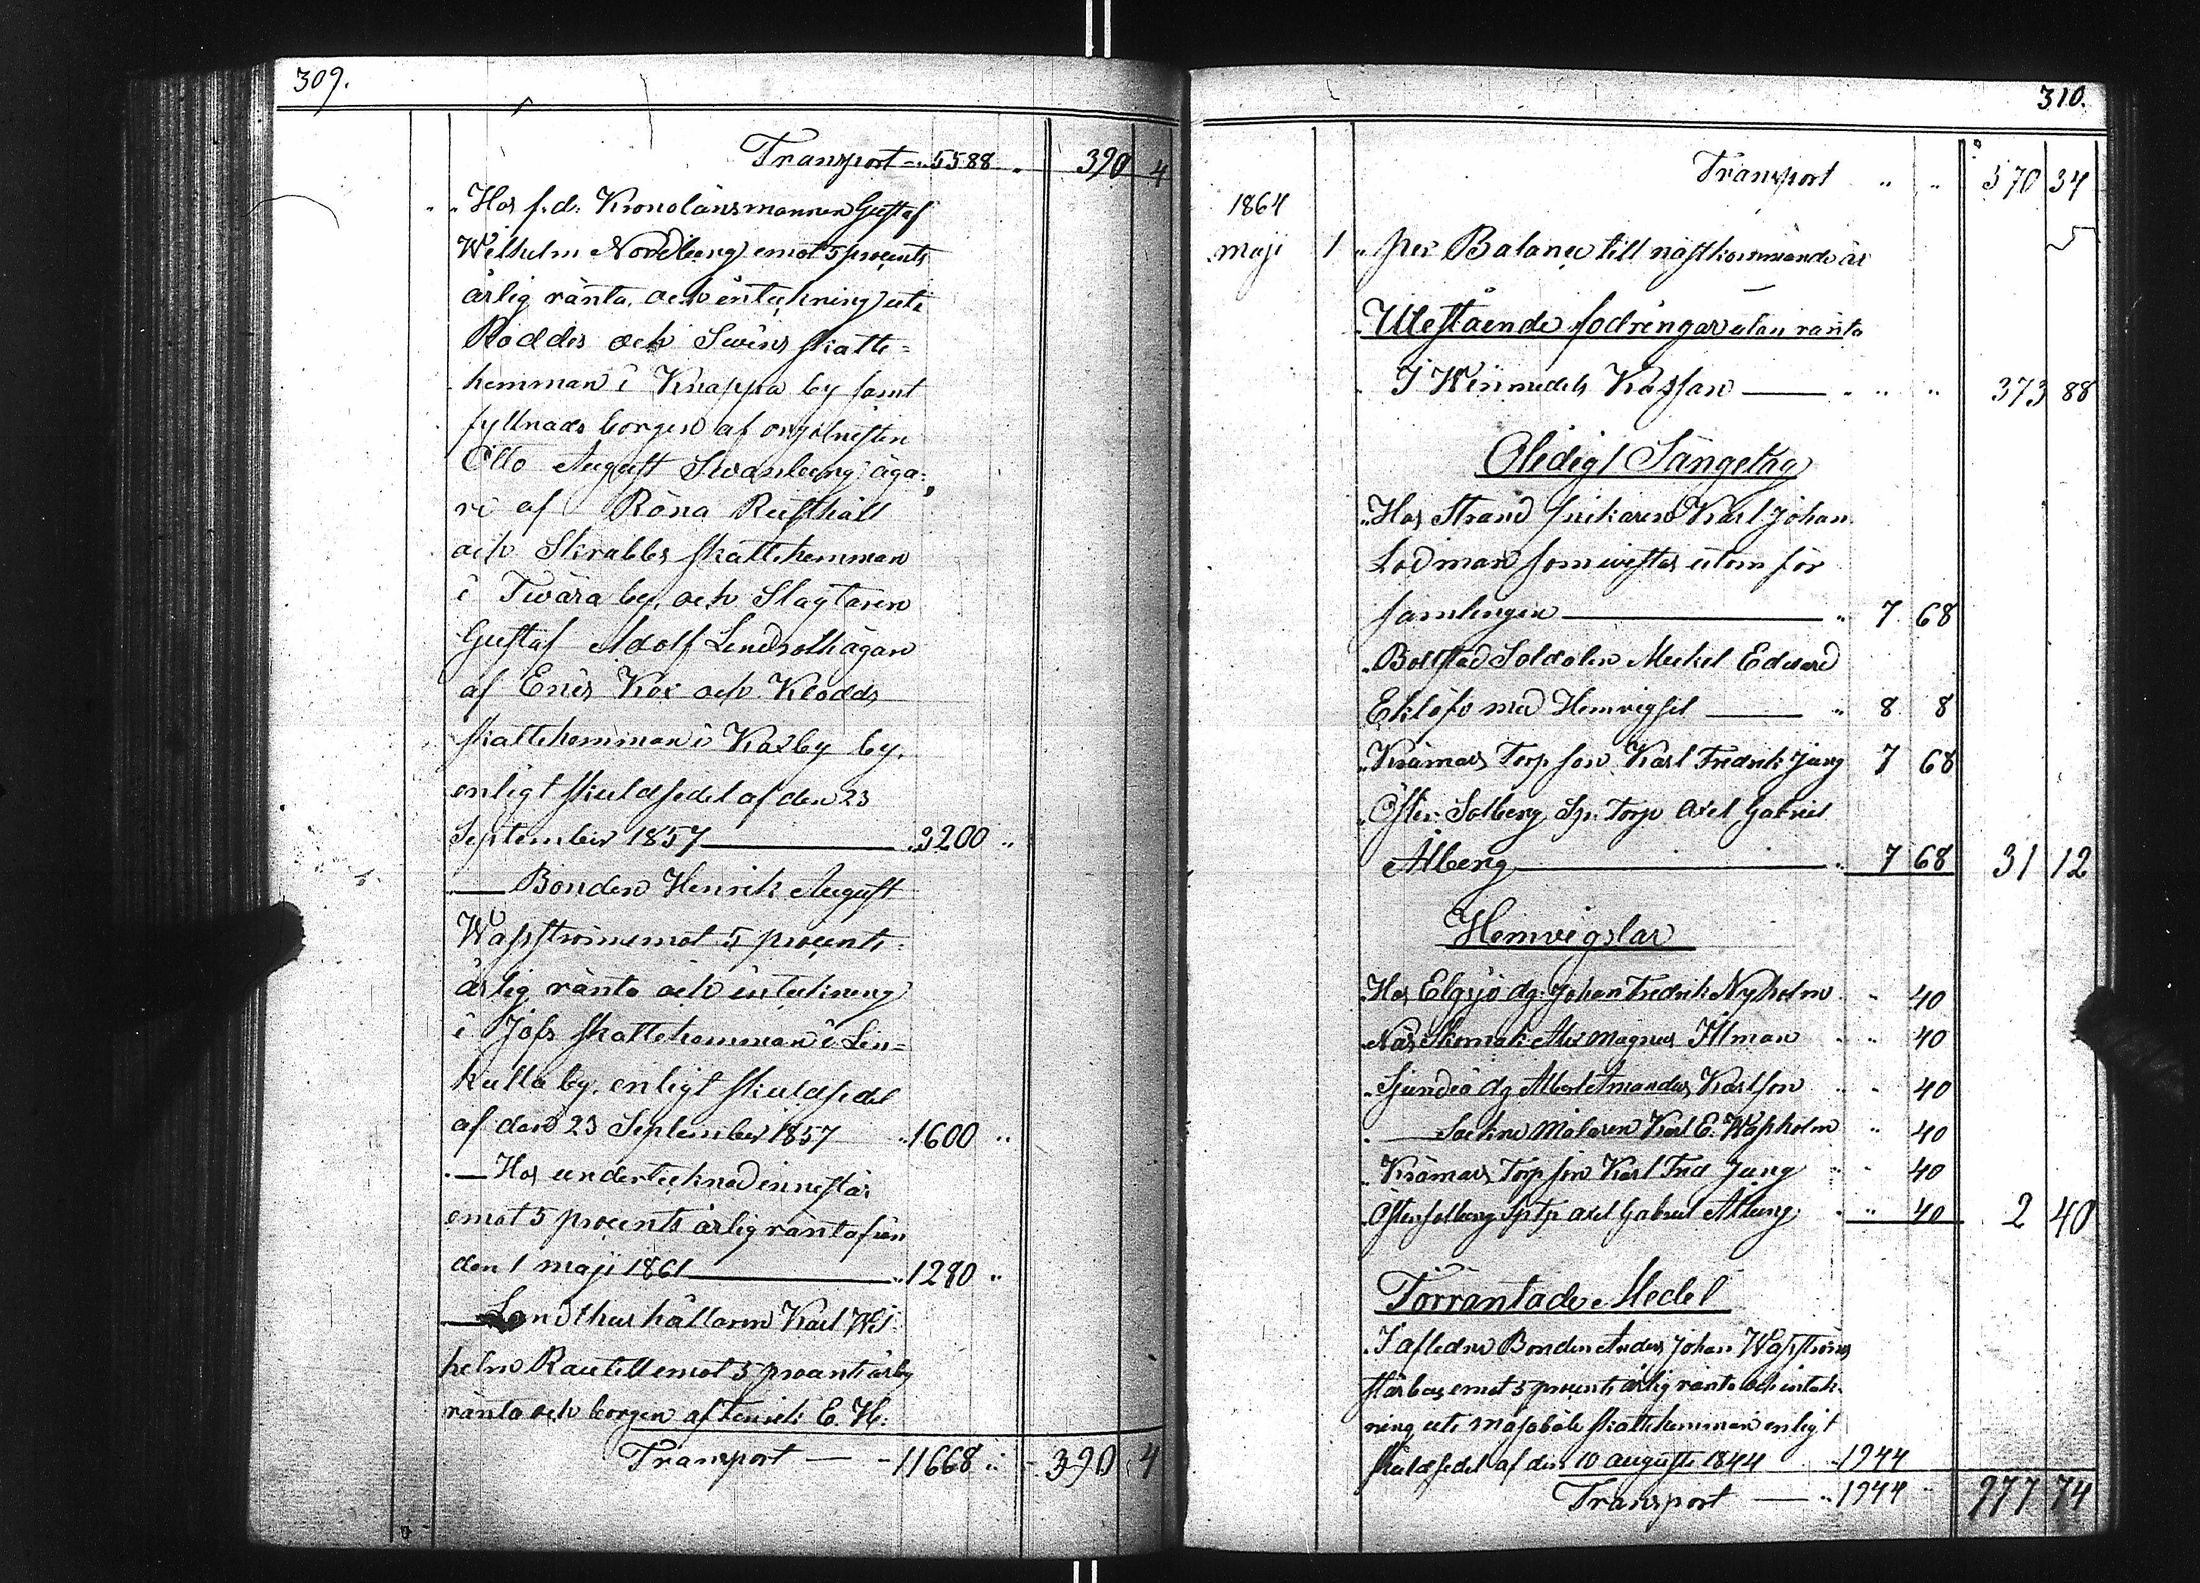 309.
Transport - 5588 " 390 4
" Hos f. d. Kronolänsmannen Gustaf
Wilhelm Nordberg emot 5 procents
årlig ränta, och inteckning uti
Roddes och Svens skatte=
hemman i Knappa by samt
fyllnads borgen af orgelnisten
Otto August Svanberg äga=
re af Röna Rusthåll
och Skrabbs skattehemman
i Tvära by, och Slagtaren
Gustaf Adolf Lindroth ägare
af Eris Kox och Klodds
skattehemman i Kaxby by,
enligt skuldsedel af den 23
September 1857 — 3200 "
— Bonden Henrik August
Wasström emot 5 procents
årlig ränta och inteckning
i Jofs skattehemman i Lin=
kulla by, enligt skuldsedel
af den 23 September 1857 " 1600 "
— Hos undertecknad innestår
emot 5 procents årlig ränta från
den 1 maji 1861 — " 1280 "
— Landthushållaren Karl Wil=
helm Rautell emot 5 procents årlig
ränta och borgen af E. H:
Transport — 11668 " 390 4
310.
Transport " " 370 34
1864
maji 1 " per Balance till nästkommande år
Utestående fodringar utan ränta
I Winmedels Kassan — " " 373 88
Oledigt Sängelag
" Hos Strand snikaren Karl Johan
Lodman som vistas utom för
samlingen — " 7 68
" Bollstad Soldaten Mickel Edvard
Eklöf med Hemvigsel — " 8 8
" Krämars Torp son Karl Fredrik Jung 7 68
" Öster Solberg Sp. Torp Axel Gabriel
Alberg — " 7 68 31 12
Hemvigslar
Hos Elgsjö dg. Johan Fredrik Nyholm " 40
" Näs Skomak: Alex Magnus Ilman " " 40
" Sjundeå dg Albert Amandus Karlson " 40
" — Sockne Målaren Karl E. Washolm " 40
" Krämars Torp son Karl Fred Jung " " 40
" Östersolberg Sptp Axel Gabriel Alberg " " 40 2 40
Förräntade Medel
" I afledne Bonden Anders Johan Wasströms
stärbus emot 5 procents årlig ränta och inteck=
ning uti Måsabåle skattehemman enligt
skuldsedel af den 10 augusti 1844 " 1944
Transport — " 1944 " 977 74